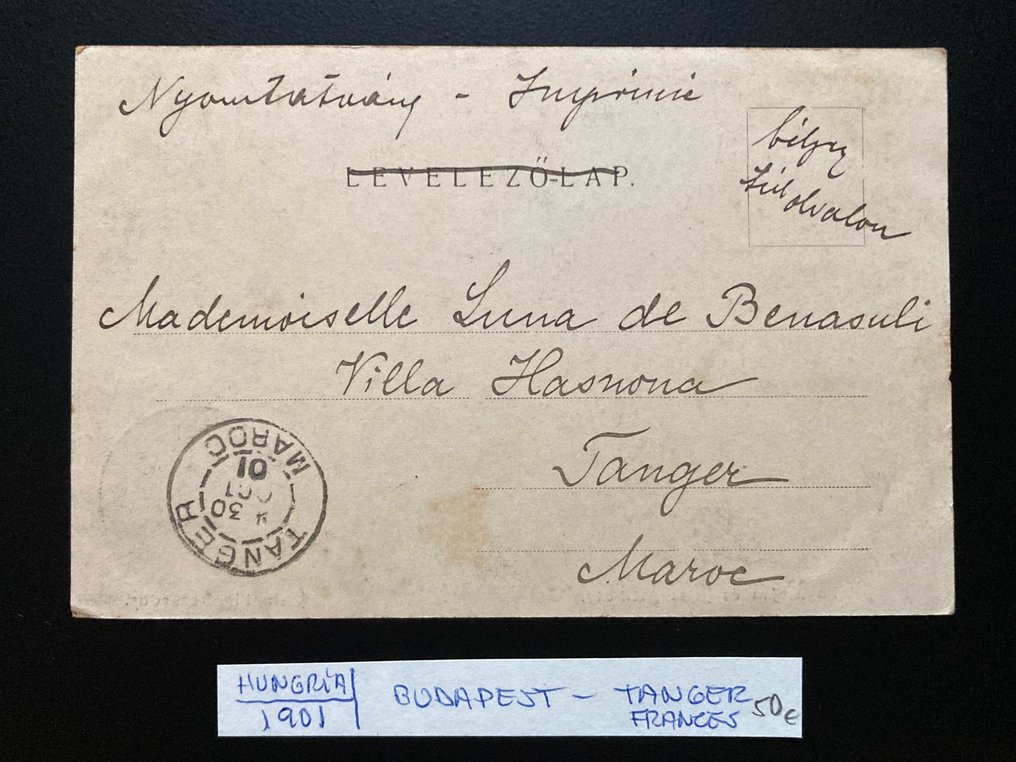 Nyomtatvány - Imprimé
LEVELEZŐ-LAP.
bélyeg
túl olvalon
Mademoiselle Luna de Benasuli
Villa Hasnona
Tanger
Maroc
TANGER
30
OCT
01
MAROC
HUNGRÍA
1901
BUDAPEST - TANGER
FRANCÉS
50€